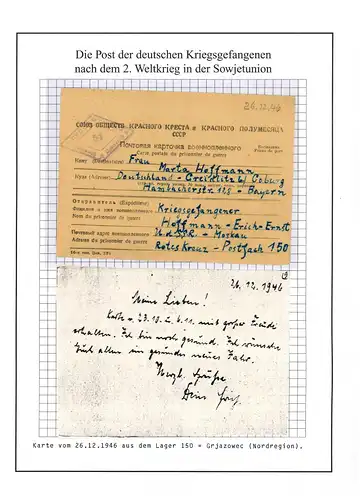 Die Post der deutschen Kriegsgefangenen
nach dem 2. Weltkrieg in der Sowjetunion
26.12.46
СОЮЗ ОБЩЕСТВ КРАСНОГО КРЕСТА и КРАСНОГО ПОЛУМЕСЯЦА
СССР
Почтовая карточка военнопленного
Carte postale du prisonnier de guerre
Кому (Destinataire) Frau
Marta Hoffmann
Куда (Adresse) Deutschland - Creidlitz b/ Coburg
Hambacherstr 128 - Bayern
Отправитель (Expéditeur)
Фамилия и имя военнопленного Kriegsgefangener
Nom du prisonnier de guerre Hoffmann - Erich-Ernst
Почтовый адрес военнопленного U.d.SSR. - Moskau
Adresse du prisonnier de guerre Rotes Kreuz - Postfach 150
26.12.1946
Meine Lieben!
Karte v. 23.10. u. 6.11. mit großer Freude
erhalten. Ich bin noch gesund. Ich wünsche
Euch allen ein gesundes neues Jahr.
Herzl. Grüße
Karte vom 26.12.1946 aus dem Lager 150 = Grjazowec (Nordregion).